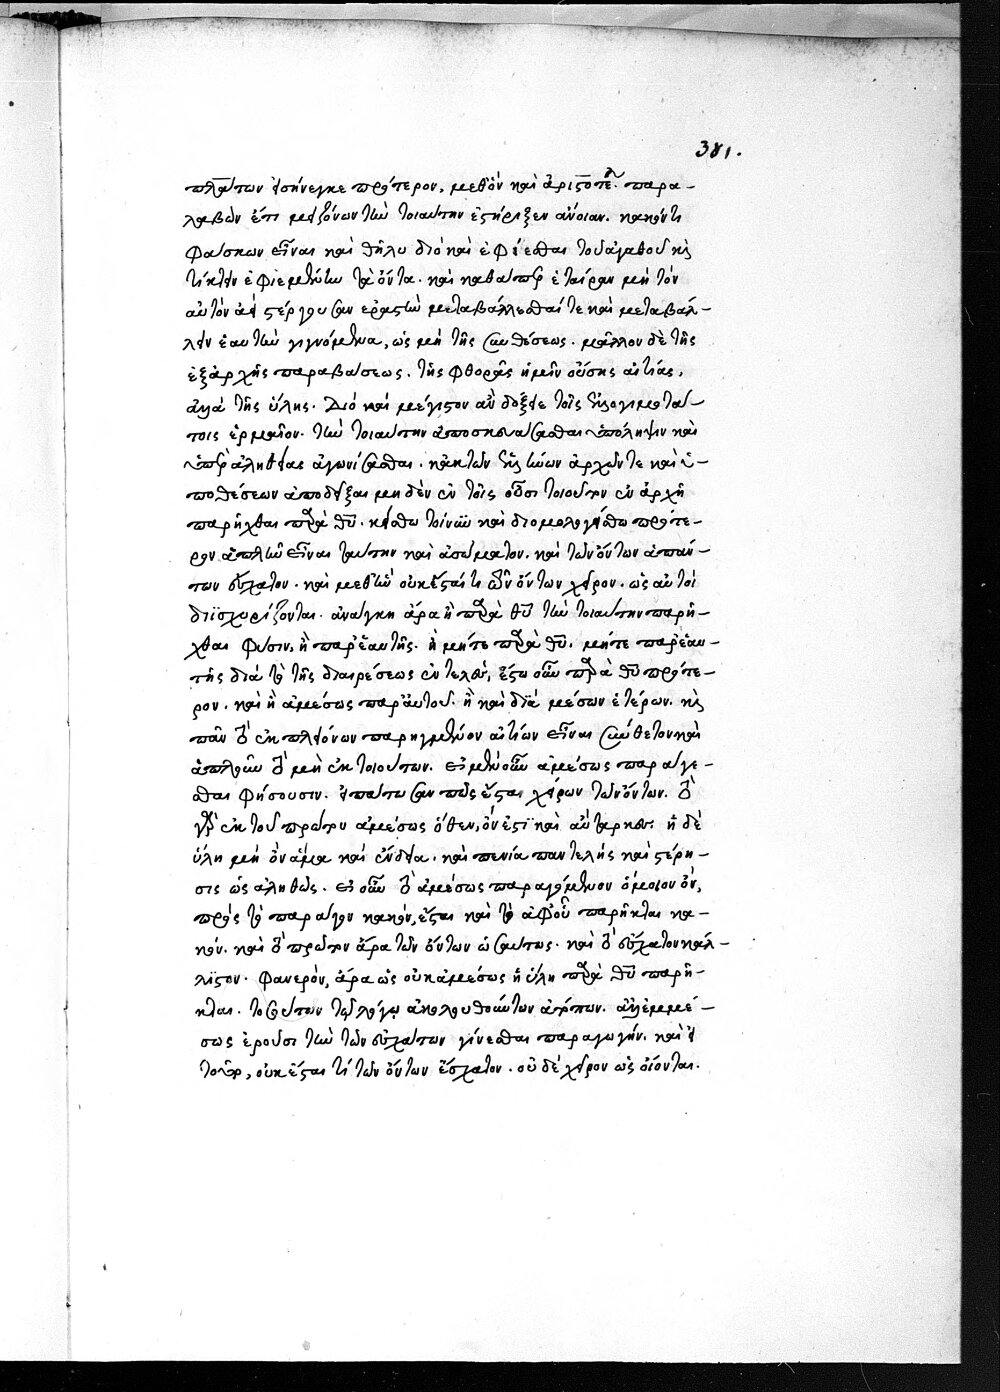 381.
πλάτων εἰσήνεγκε πρότερον, μεθ' ὃν καὶ ἀριστοτέλης παρα-
λαβὼν ἔτι μειζόνων τὴν τοιαύτην ἐστήριξεν ἄνοιαν. κακόν τι
φάσκων εἶναι καὶ θῆλυ διὸ καὶ ἐφίεσθαι τοῦ ἀγαθοῦ καὶ
τίκτειν ἐφιεμένην τὰ ὄντα. καὶ καθάπερ ἑταίραν μὴ τὸν
αὐτὸν ἀεὶ στέργουσαν ἐραστὴν μεταβάλλεσθαί τε καὶ μεταβάλ-
λειν ἑαυτὴν γιγνόμενα, ὡς μὴ τῆς συνθέσεως. μᾶλλον δὲ τῆς
ἐξαρχῆς παραβάσεως. τῆς φθορᾶς ἡμῖν οὔσης αἰτίας,
ἀλλὰ τῆς ὕλης. διὸ καὶ μέγιστον ἂν δόξειε τοῖς ἐλλογιμωτά-
τοις ἕρμαιον. τὴν τοιαύτην ἀποσκευάσασθαι ὑπόληψιν καὶ
ὑπὲρ ἀληθείας ἀγωνίσασθαι. κἀκ τῶν ἐκείνων ἀρχῶν τε καὶ ὑ-
ποθέσεων ἀποδεῖξαι μηδὲν ἐν τοῖς οὖσι τοιοῦτον ἐν ἀρχῇ
παρῆχθαι παρὰ θεοῦ. κείσθω τοίνυν καὶ διομολογείσθω πρότε-
ρον ἁπλῆν εἶναι ταύτην καὶ ἀσώματον. καὶ τῶν ὄντων ἁπάν-
των ἔσχατον. καὶ μεθ' ἣν οὐκ ἔσται τι τῶν ὄντων χεῖρον. ὡς αὐτοὶ
διϊσχυρίζονται. ἀνάγκη ἄρα ἢ παρὰ θεοῦ τὴν τοιαύτην παρῆ-
χθαι φύσιν, ἢ παρ' ἑαυτῆς. ἢ μήτε παρὰ θεοῦ. μήτε παρ' ἑαυ-
τῆς διὰ τὸ τῆς διαιρέσεως ἐντελὲς, ἔστω οὖν παρὰ θεοῦ πρότε-
ρον. καὶ ἢ ἀμέσως παρ' αὐτοῦ. ἢ καὶ διὰ μέσων ἑτέρων. καὶ
πᾶν τὸ ἐκ πλειόνων παρηγμένον αἰτίων εἶναι σύνθετον καὶ
ἁπλοῦν τὸ μὴ ἐκ τοιούτων. εἰ μὲν οὖν ἀμέσως παράγε-
σθαι φήσουσιν. εἰπάτωσαν πῶς ἔσται χεῖρον τῶν ὄντων. τὸ
γὰρ ἐκ τοῦ πρώτου ἀμέσως ὅθεν, ὄν ἐστὶ καὶ αὔταρκες. ἡ δὲ
ὕλη μὴ ὂν ἅμα καὶ ἔνδεια. καὶ πενία παντελὴς καὶ στέρη-
σις ὡς ἀληθῶς. εἰ οὖν τὸ ἀμέσως παραγόμενον ὅμοιον ὂν,
πρὸς τὸ παράγον κακόν, ἔσται καὶ τὸ ἀφ' οὗ παρῆκται κα-
κόν. καὶ τὸ πρῶτον ἄρα τῶν ὄντων ὡσαύτως. καὶ τὸ ἔσχατον κάλ-
λιστον. φανερὸν, ἄρα ὡς οὐκ ἀμέσως ἡ ὕλη παρὰ θεοῦ παρῆ-
κται. τοσούτων τῷ λόγῳ ἀκολουθούντων ἀτόπων. ἀλλ' ἐμμέ-
σως ἐροῦσι τὴν τῶν ἐσχάτων γίνεσθαι παραγωγήν. καὶ εἰ
τοῦτο, οὐκ ἔσται τί τῶν ὄντων ἔσχατον. οὐδὲ χεῖρον ὡς οἴονται.